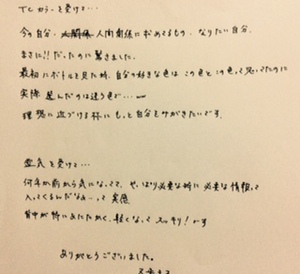 TCカラーを受けて…
今の自分、人間関係に求めてるもの、なりたい自分、
まさに!!だったのに驚きました。
最初にボトルを見た時、自分の好きな色はこの色とこの色って思ってたのに
実際選んだのは違う色で…
理想に近づける様にもっと自分をみがきたいです。
霊気を受けて…
何年か前から気になってて、やっぱり必要な時に必要な情報って
入ってくるんだなぁ…って実感
背中が特にあたたかく、軽くなってスッキリ!です
ありがとうございました。